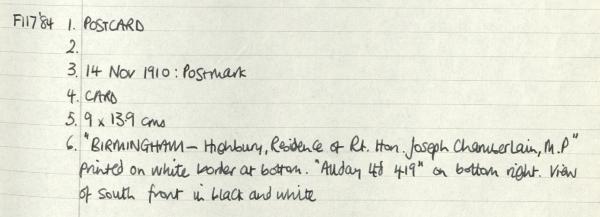 F117'84 1. POSTCARD
2.
3. 14 Nov 1910: Postmark
4. CARD
5. 9 x 13.9 cms
6. "BIRMINGHAM - Highbury, Residence of Rt. Hon. Joseph Chamberlain, M.P"
printed on white border at bottom. "Allday Ltd 419" on bottom right. View
of south front in black and white